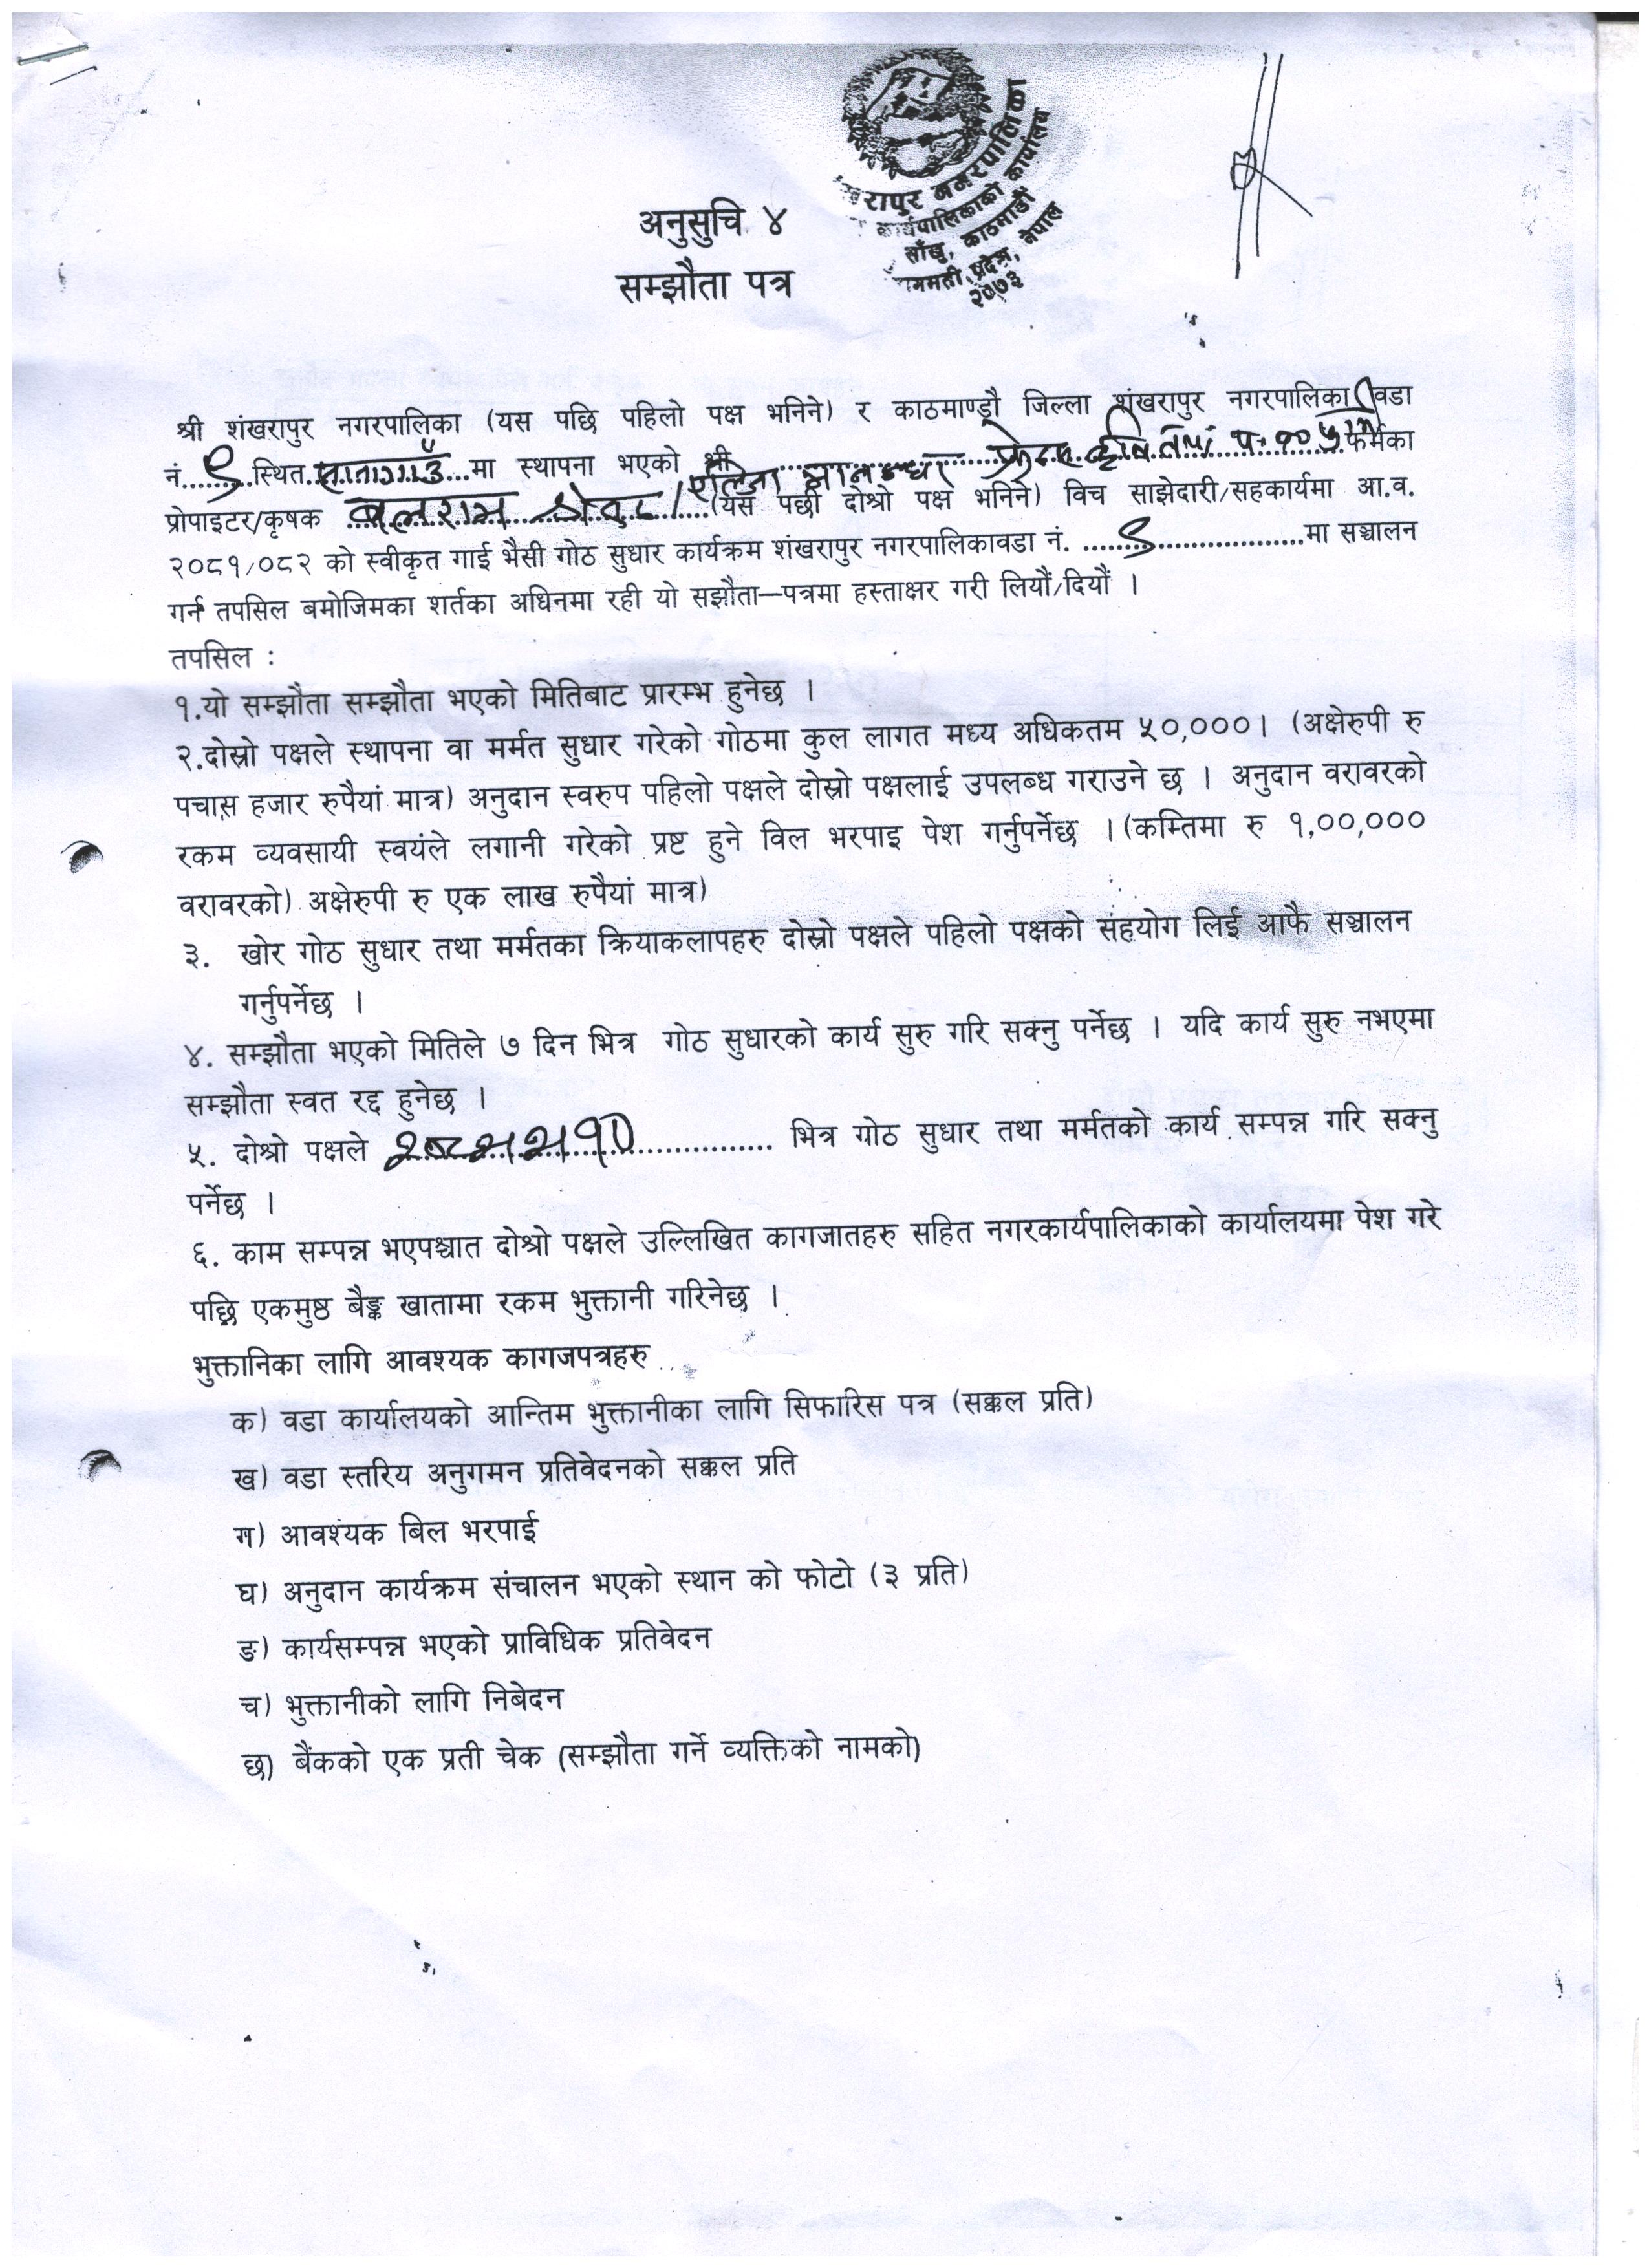 रापुर नगरपालिका
कार्यपालिकाको कार्यालय
साँखु, काठमाडौं
ागमती प्रदेश, नेपाल
२०७३
अनुसुचि ४
सम्झौता पत्र
श्री शंखरापुर नगरपालिका (यस पछि पहिलो पक्ष भनिने) र काठमाण्डौ जिल्ला शंखरापुर नगरपालिका वडा
नं.........९...स्थित.सानागाउँ...मा स्थापना भएको श्री ............ फ्रेन्डस कृषि तथा प. पा. फर्मका
प्रोपाइटर/कृषक बलराम श्रेष्ठ / एलिजा मानन्धर (यस पछी दोश्रो पक्ष भनिने) विच साझेदारी/सहकार्यमा आ.व.
२०८१/०८२ को स्वीकृत गाई भैसी गोठ सुधार कार्यक्रम शंखरापुर नगरपालिकावडा नं. .......९....................मा सञ्चालन
गर्न तपसिल बमोजिमका शर्तका अधिनमा रही यो सझौता–पत्रमा हस्ताक्षर गरी लियौं/दियौं ।
तपसिल :
१.यो सम्झौता सम्झौता भएको मितिबाट प्रारम्भ हुनेछ ।
२.दोस्रो पक्षले स्थापना वा मर्मत सुधार गरेको गोठमा कुल लागत मध्य अधिकतम ५०,०००। (अक्षेरुपी रु
पचास हजार रुपैयां मात्र) अनुदान स्वरुप पहिलो पक्षले दोस्रो पक्षलाई उपलब्ध गराउने छ । अनुदान वरावरको
रकम व्यवसायी स्वयंले लगानी गरेको प्रष्ट हुने विल भरपाइ पेश गर्नुपर्नेछ ।(कम्तिमा रु १,००,०००
वरावरको) अक्षेरुपी रु एक लाख रुपैयां मात्र)
३. खोर गोठ सुधार तथा मर्मतका क्रियाकलापहरु दोस्रो पक्षले पहिलो पक्षको सहयोग लिई आफै सञ्चालन
गर्नुपर्नेछ ।
४. सम्झौता भएको मितिले ७ दिन भित्र गोठ सुधारको कार्य सुरु गरि सक्नु पर्नेछ । यदि कार्य सुरु नभएमा
सम्झौता स्वत रद्द हुनेछ ।
५. दोश्रो पक्षले २०८२।२।१० ................ भित्र गोठ सुधार तथा मर्मतको कार्य सम्पन्न गरि सक्नु
पर्नेछ ।
६. काम सम्पन्न भएपश्चात दोश्रो पक्षले उल्लिखित कागजातहरु सहित नगरकार्यपालिकाको कार्यालयमा पेश गरे
पछि एकमुष्ठ बैङ्क खातामा रकम भुक्तानी गरिनेछ ।
भुक्तानिका लागि आवश्यक कागजपत्रहरु
क) वडा कार्यालयको आन्तिम भुक्तानीका लागि सिफारिस पत्र (सक्कल प्रति)
ख) वडा स्तरिय अनुगमन प्रतिवेदनको सक्कल प्रति
ग) आवश्यक बिल भरपाई
घ) अनुदान कार्यक्रम संचालन भएको स्थान को फोटो (३ प्रति)
ङ) कार्यसम्पन्न भएको प्राविधिक प्रतिवेदन
च) भुक्तानीको लागि निबेदन
छ) बैंकको एक प्रती चेक (सम्झौता गर्ने व्यक्तिको नामको)